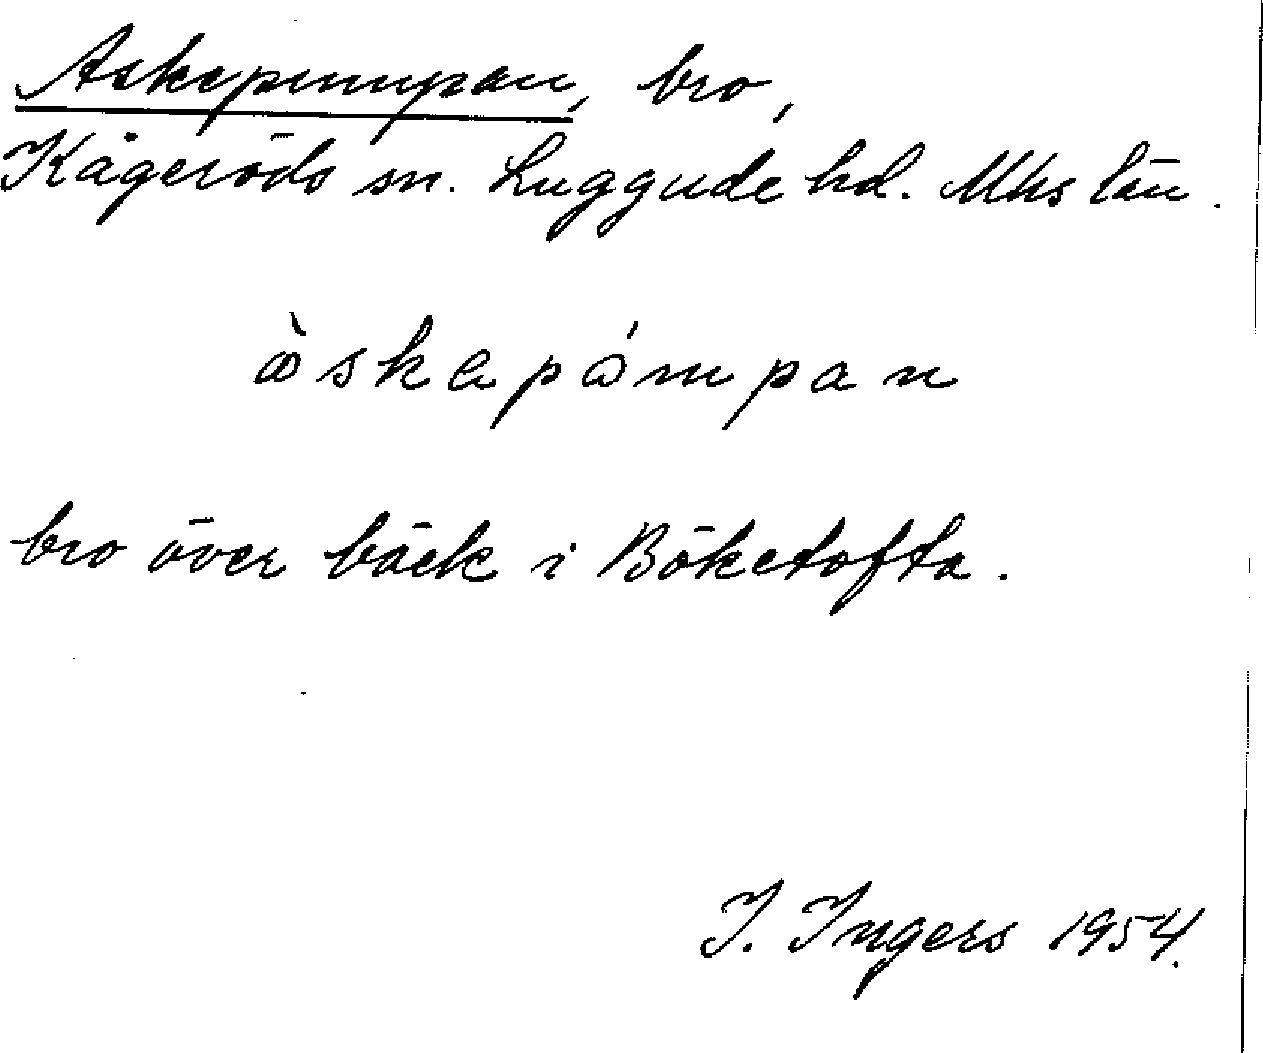 Askepumpan, bro,
Kågeröds sn. Luggude hd. Mhs län.
bro över bäck i Böketofta.
I. Ingers 1954.